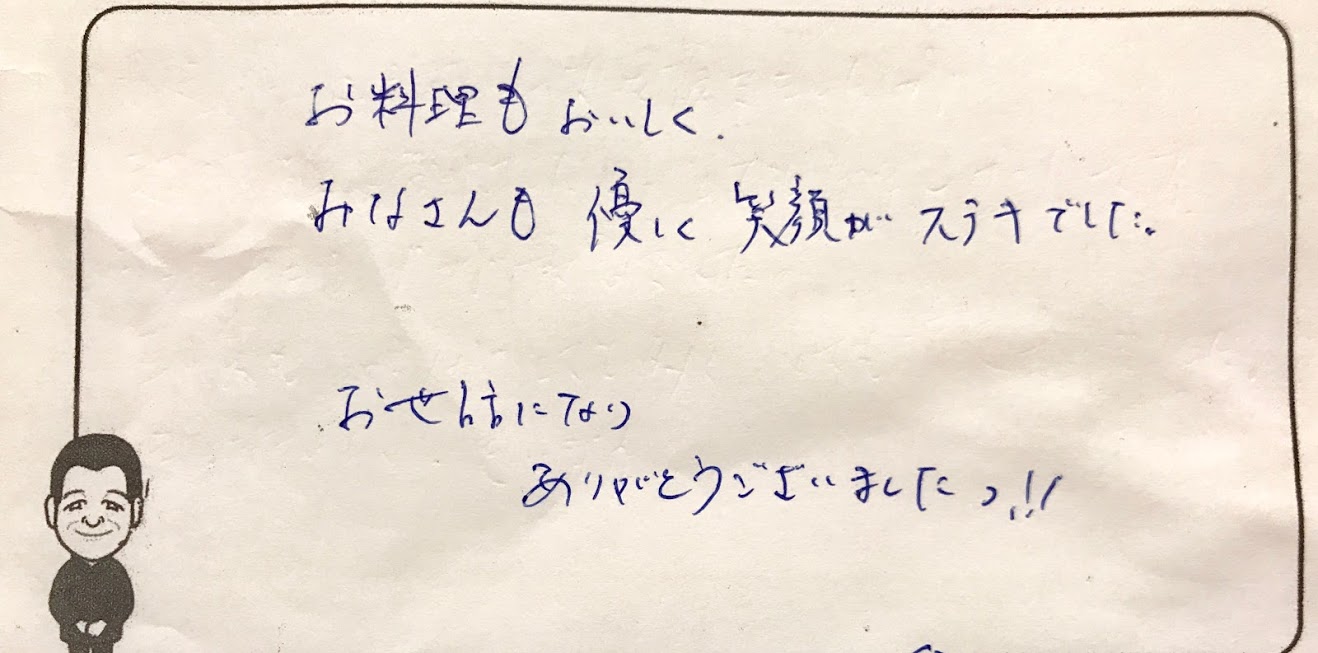 お料理も おいしく.
みなさんも 優しく 笑顔が ステキでした。
お世話になり
ありがとうございましたっ!!